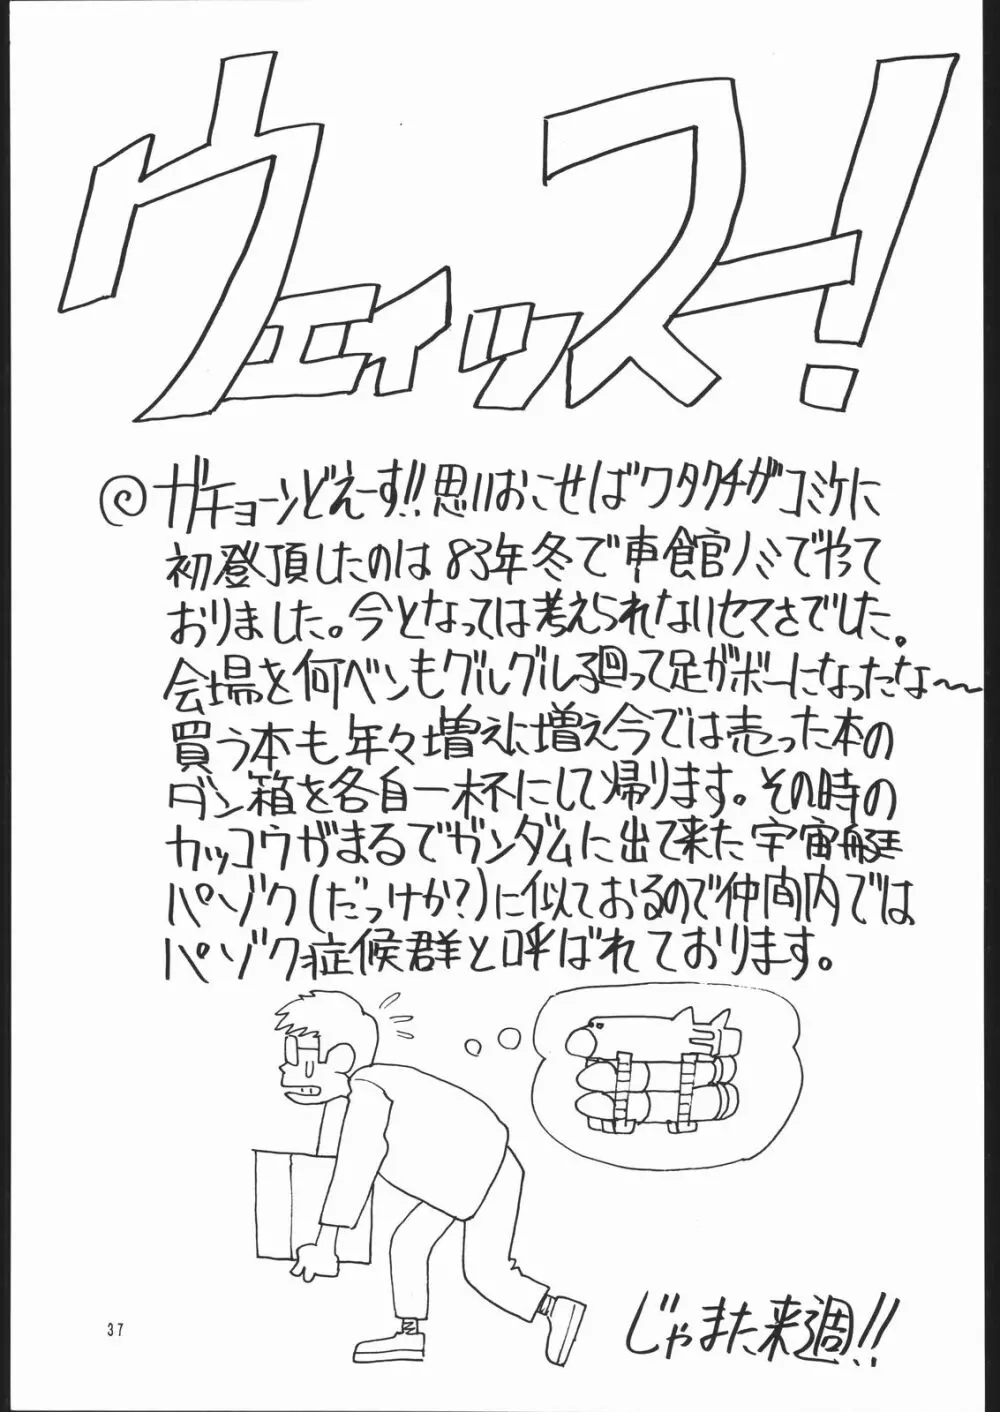 ウェイッスー!
ガチョーンどえーす!!思いおこせばワタクチがコミケに
初登頂したのは83年冬で車食官ノミでやって
おりました。今となっては考えられないセマさでした。
会場を何ベンもグルグル廻って足がボーになったな〜
買う本も年々増えに増え今では売った本の
ダン箱を各自一杯にして帰ります。その時の
カッコウがまるでガンダムに出て来た宇宙艇
パゾク(だっけか?)に似ておるので仲間内では
パゾク症候群と呼ばれております。
じゃまた来週!!
37